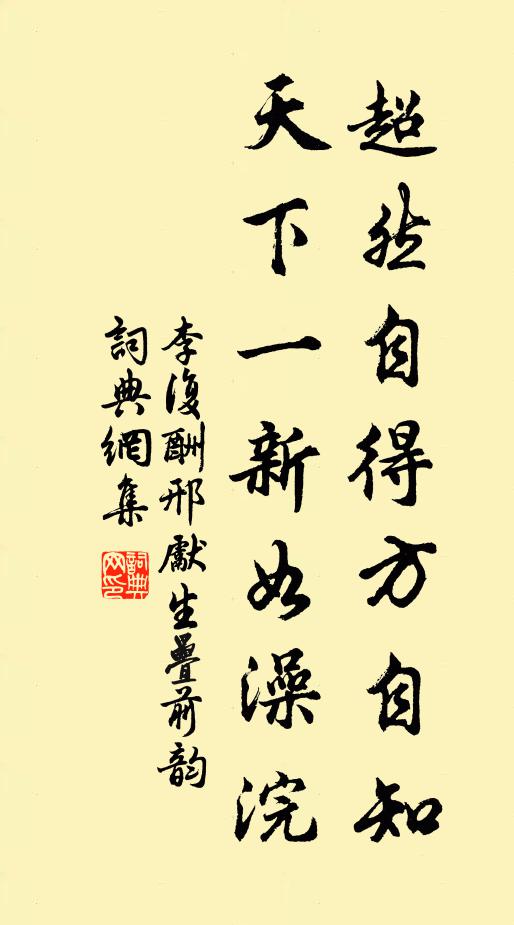 超然自得方自知
天下一新如澡浣
李復酬邢獻生疊前韵
詞典網集
詞典網印